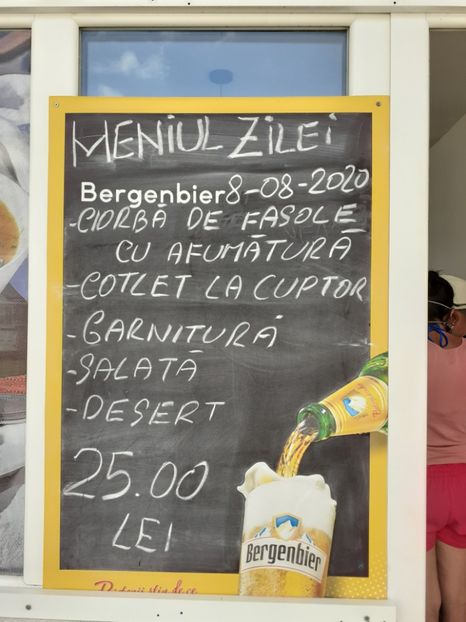 MENIUL ZILEI
Bergenbier 8-08-2020
-CIORBĂ DE FASOLE
CU AFUMĂTURĂ
-COTLET LA CUPTOR
-GARNITURĂ
-SALATĂ
-DESERT
25.00
LEI
Bergenbier